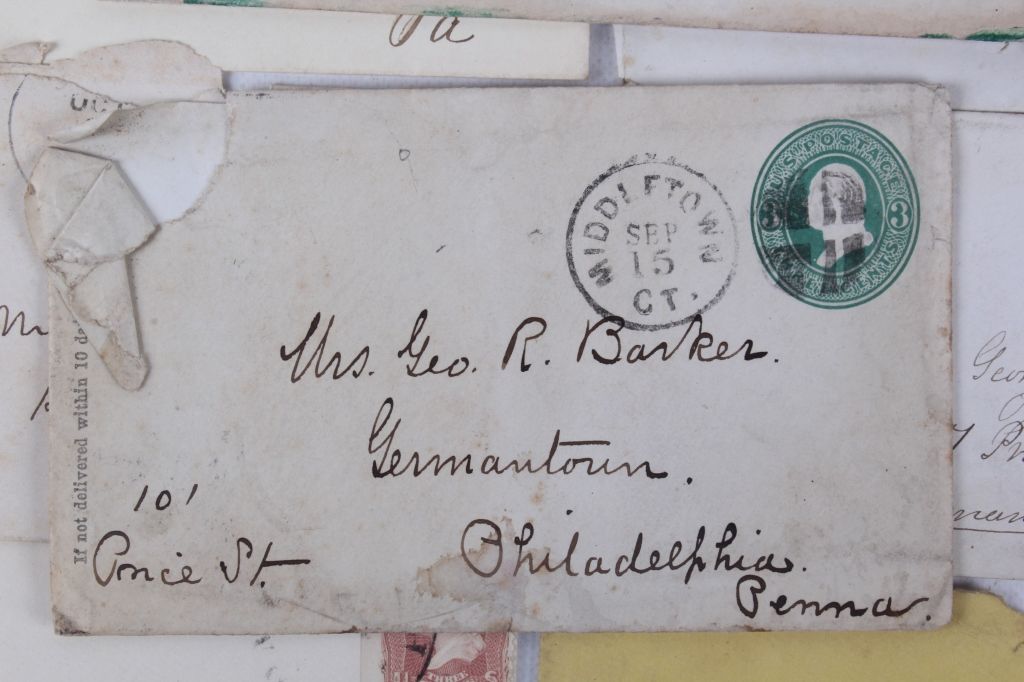 Pa
OCT
U.S. POSTAGE
3 3
THREE CENTS
MIDDLETOWN
SEP
15
CT.
Mrs. Geo. R. Barker.
Germantown.
Philadelphia.
Penna.
101
Price St.
If not delivered within 10 da
Geo
THREE